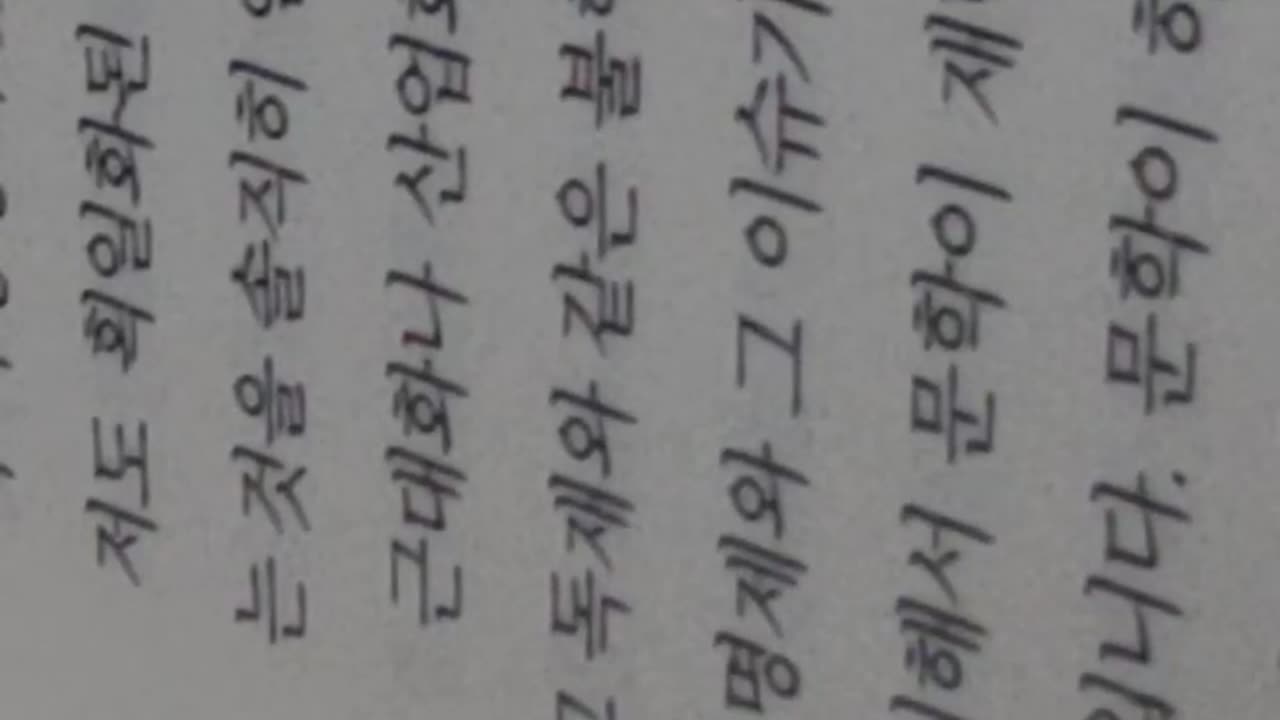 저도 획일화된
는 것을 솔직히
근대화나 산업화
독재와 같은 불
명제와 그 이슈가
해서 문학이 제
입니다. 문학이